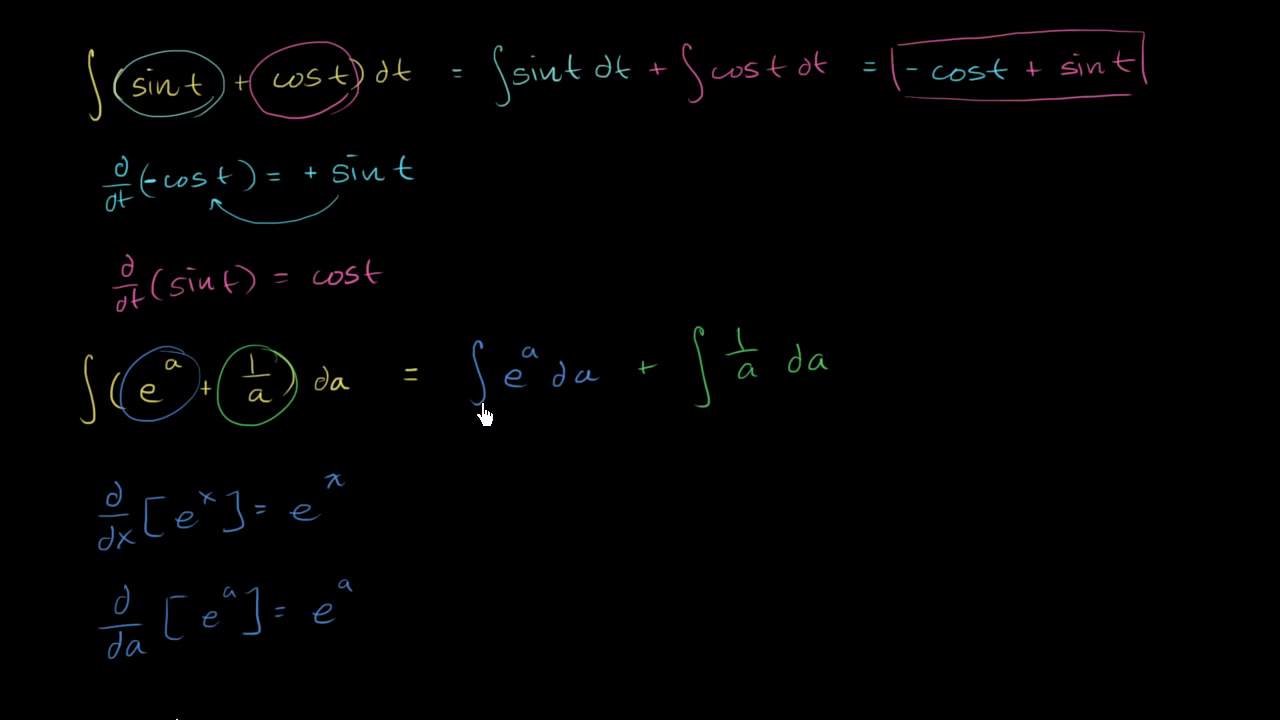 ∫ (sin t + cos t) dt = ∫ sin t dt + ∫ cos t dt = - cos t + sin t
d/dt (-cos t) = + sin t
d/dt (sin t) = cos t
∫ (e^a + 1/a) da = ∫ e^a da + ∫ 1/a da
d/dx [e^x] = e^x
d/da [e^a] = e^a